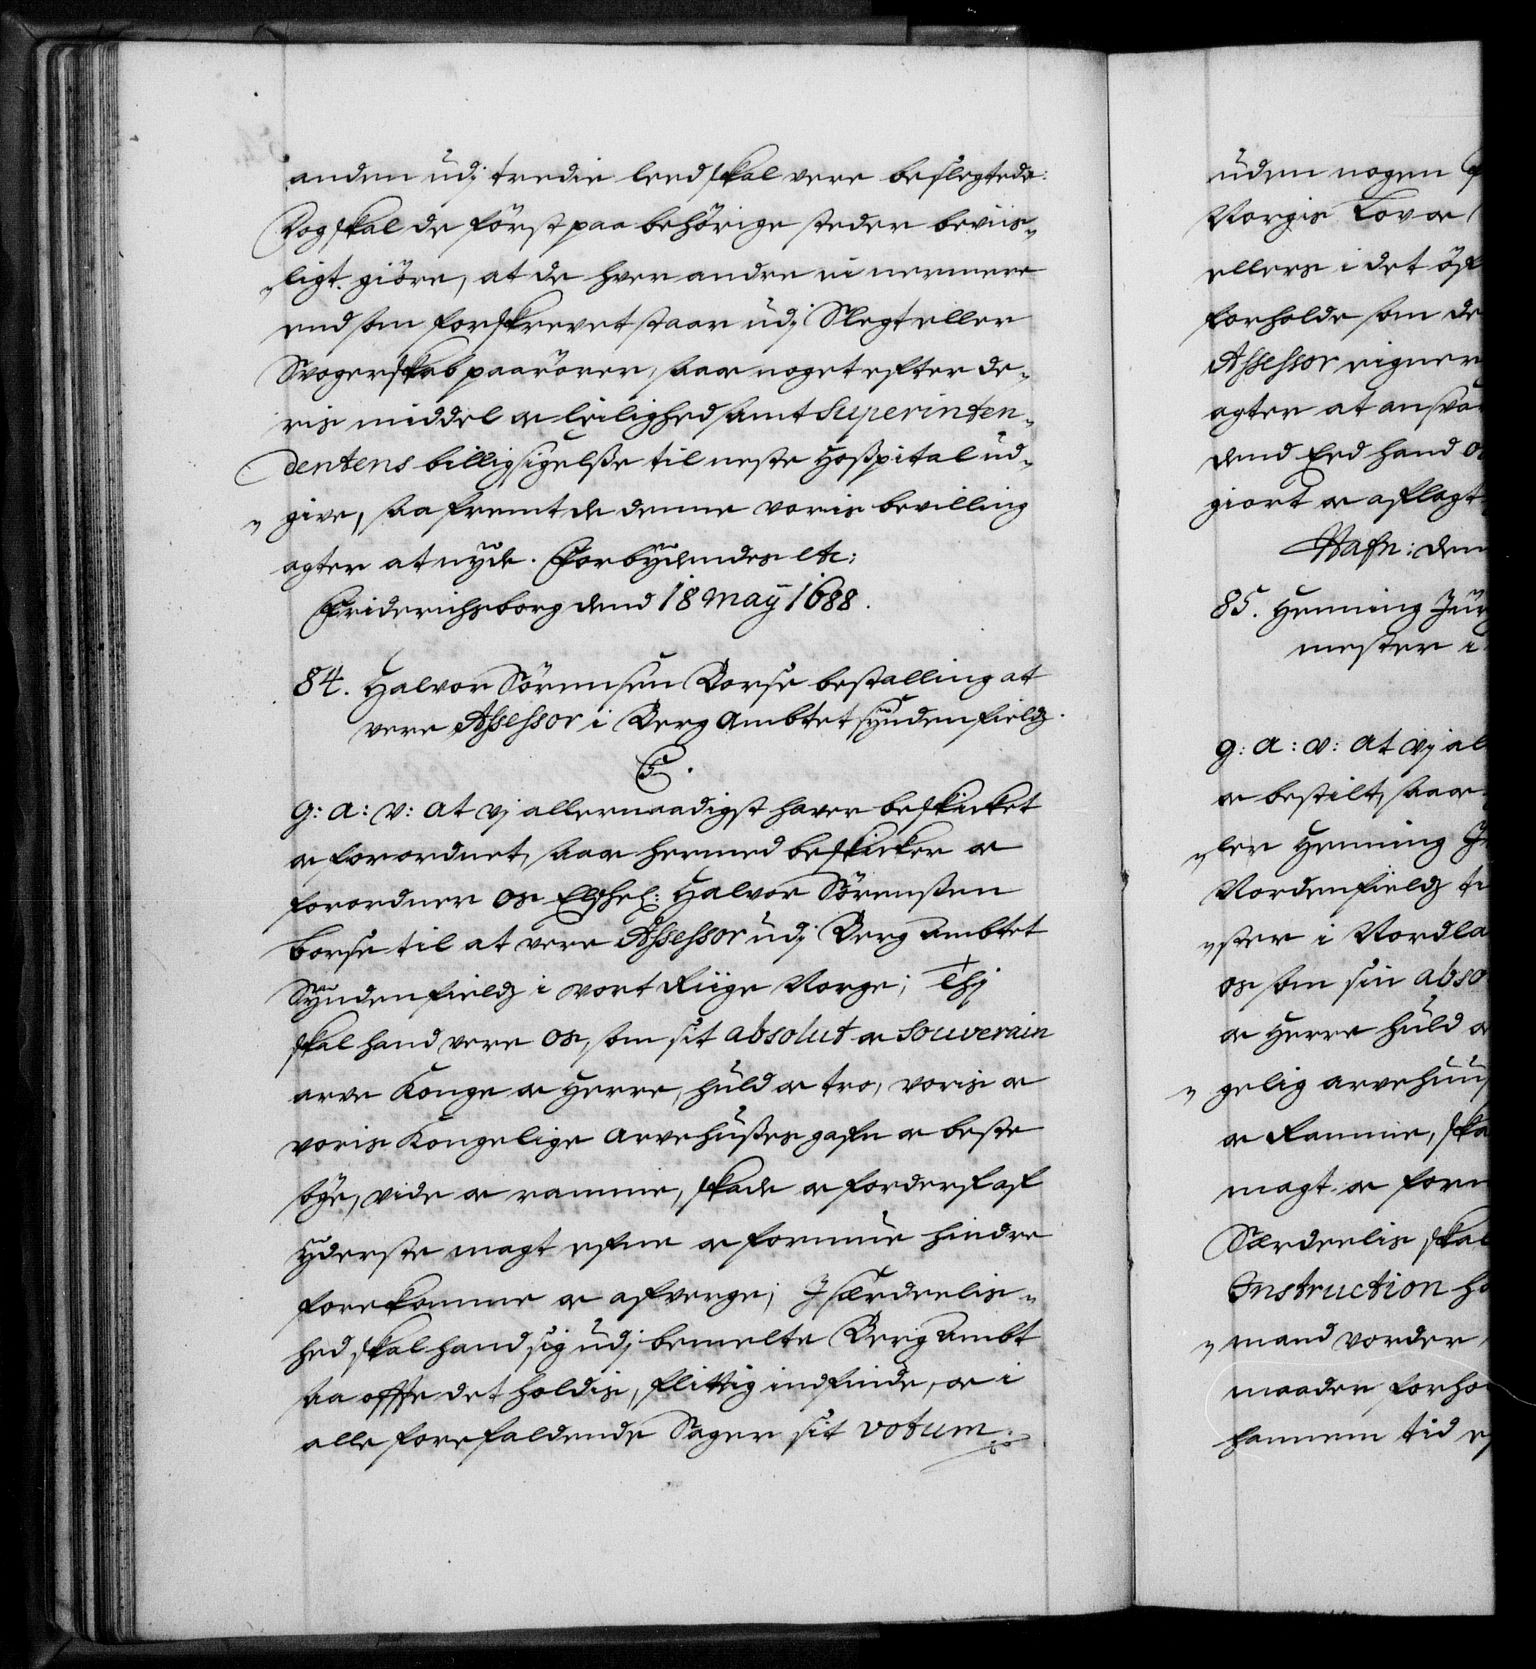 anden udj tredie leed skal vere beslegtede:
Dog skal de först paa behörige steder beviis-
ligt giöre, at de hver andre ei nermere
end som forskrevet staar udj Slegt eller
Svogerskab paarörer, saa og noget efter de-
ris middel og leilighed samt Superinten-
dentens billigsigelsse til neste Hosspital ud-
give, saafremt de denne voris bevilling
agter at nyde. Forbydendes etc:
Friderichsborg dend 18 May 1688.
84. Halvor Sörensen Borse bestalling at
vere Assessor i Berg Ambtet syndenfields
C5.
G: A: V: at vj allernaadigst haver beskicket
og forordnet, saa og hermed beskicker og
forordner os Elschel: Halvor Sörenssen
borse til at vere Assessor udj Berg Ambtet
Syndenfields i vort Riige Norge; Thj
skal hand vere os, som sit absolut og souverain
arve Konge og Herre, huld og tro, voris og
voris Kongelige arvehusses gafn og beste
söge, vide og ramme, skade og forderf af
yderste magt efne og formue hindre
forekomme og afverge; J særdeelis-
hed skal hand sig udj bemelte Berg Ambt
saa offte det holdis, flittig indfinde, og i
alle forefaldende Sager sit votum
uden nogen
Norgis Lov og
ellers i det öf
forholde som de
Assessor eigner
agter at ansva
dend Eed hand o
giort og aflagt
Hafn: den
85. Henning Jür
mester i
G: A: V: at vj al
og bestilt, saa og
ler Henning J
Nordenfields ti
ster i Nordla
os som sin abso
og Herre huld og
gelig arvehuus
og Ramme, ska
magt og form
Særdeelis skal
Instruction ha
mand vorder
maader forho
hannem tid ef